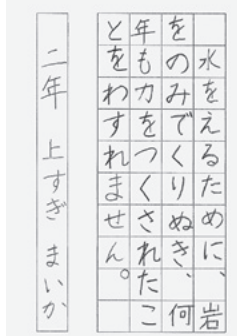 水をえるために、岩
をのみでくりぬき、何
年も力をつくされたこ
とをわすれません。
二年 上すぎ まいか